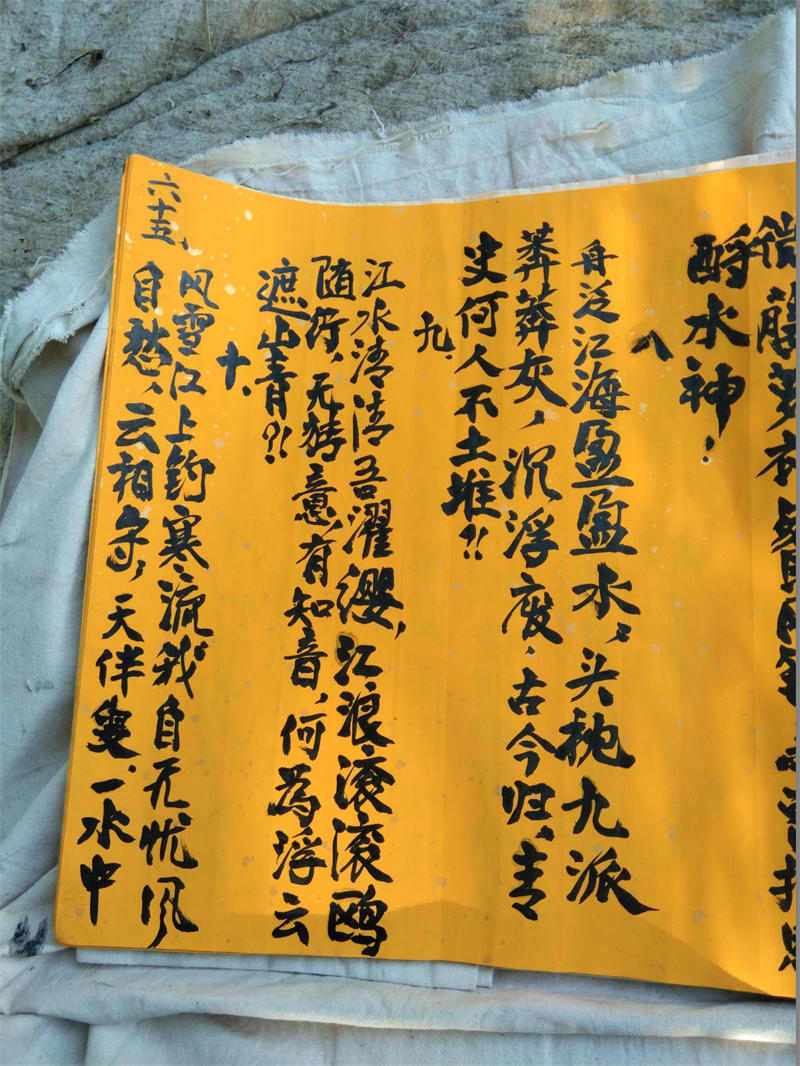 藤萝衣
酹水神！
八
舟泛江海盈盈水，头枕九派
莽莽灰，沉浮废，古今归，青
史何人不土堆?!
九、
江水清清吾濯缨，江浪滚滚鸥
随行，无猜意，有知音，何為浮云
遮山青?!
十、
风雪江上钓寒流我自无忧风
自愁，云相守，天伴叟，一水中
六十五、